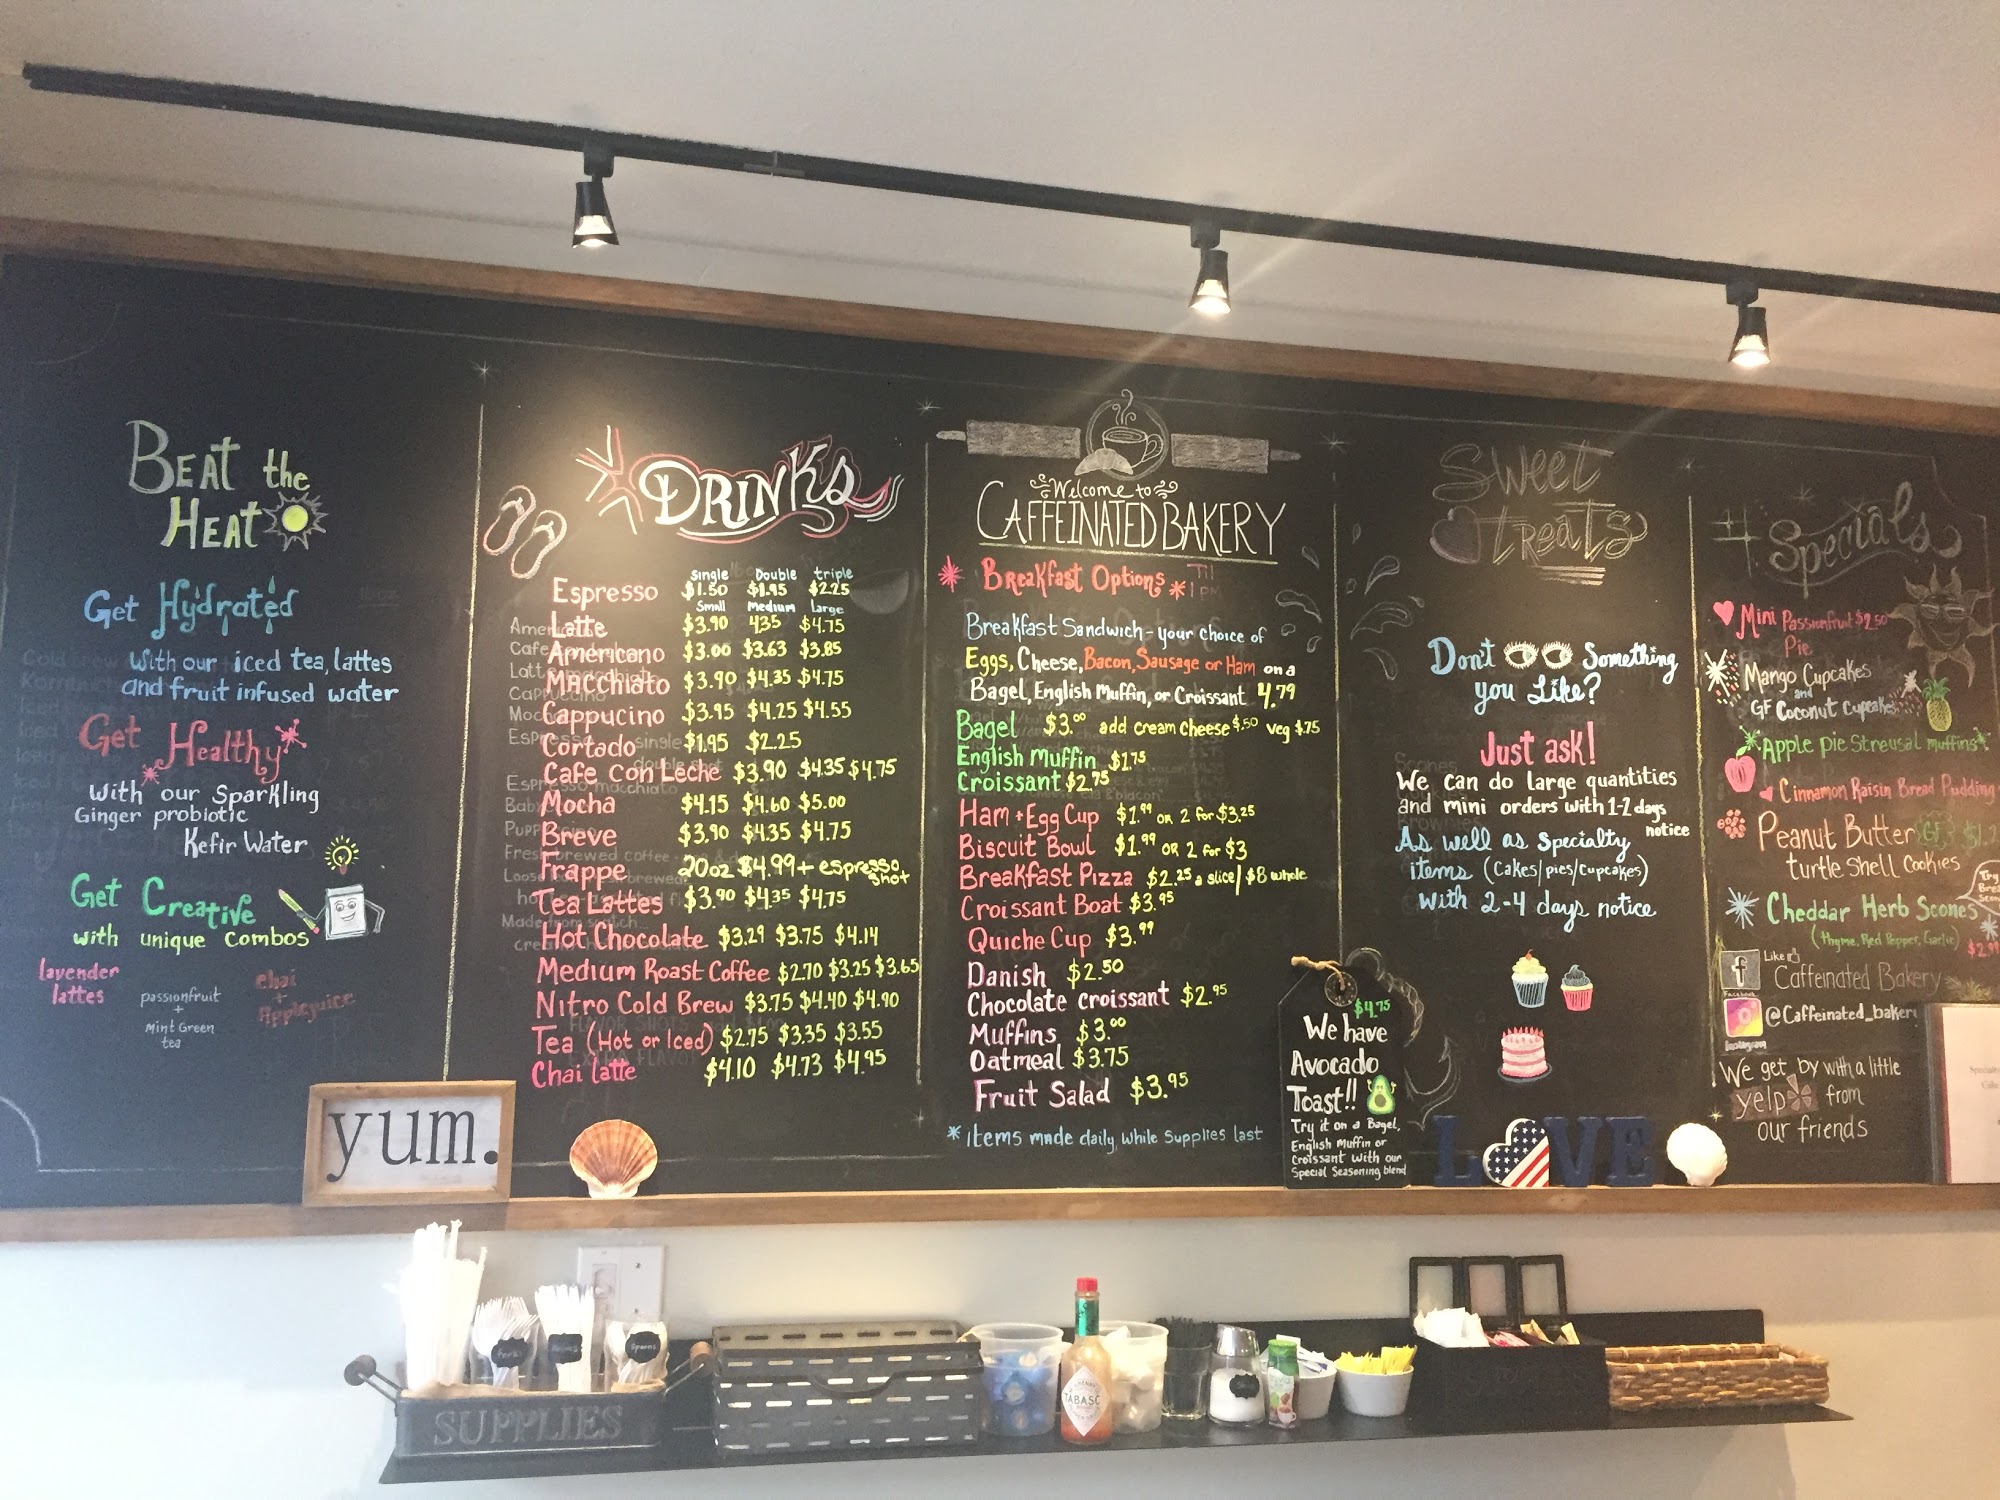 BEAT the
HEAT
Get Hydrated
with our iced tea, lattes
and fruit infused water
Get Healthy
with our Sparkling
Ginger probiotic
Kefir Water
Get Creative
with unique combos
lavender
lattes
passionfruit
+
Mint Green
tea
chai
+
Applejuice
yum.
DRINKS
Single Double triple
Espresso $1.50 $1.95 $2.25
Small Medium Large
Latte $3.90 4.35 $4.75
Americano $3.00 $3.63 $3.85
Macchiato $3.90 $4.35 $4.75
Cappucino $3.95 $4.25 $4.55
Cortado $1.95 $2.25
Cafe Con Leche $3.90 $4.35 $4.75
Mocha $4.15 $4.60 $5.00
Breve $3.90 $4.35 $4.75
Frappe 20oz $4.99 + espresso
shot
Tea Lattes $3.90 $4.35 $4.75
Hot Chocolate $3.29 $3.75 $4.14
Medium Roast Coffee $2.70 $3.25 $3.65
Nitro Cold Brew $3.75 $4.40 $4.90
Tea (Hot or Iced) $2.75 $3.35 $3.55
Chai latte $4.10 $4.73 $4.95
Welcome to
CAFFEINATED BAKERY
Breakfast Options Til
1 pm
Breakfast Sandwich - your choice of
Eggs, Cheese, Bacon, Sausage or Ham on a
Bagel, English Muffin, or Croissant 4.79
Bagel $3.00 add cream cheese $.50 veg $.75
English Muffin $1.75
Croissant $2.75
Ham + Egg Cup $1.99 or 2 for $3.25
Biscuit Bowl $1.99 or 2 for $3
Breakfast Pizza $2.25 a slice/ $8 whole
Croissant Boat $3.95
Quiche Cup $3.99
Danish $2.50
Chocolate croissant $2.95
Muffins $3.00
Oatmeal $3.75
Fruit Salad $3.95
* items made daily, while supplies last
$4.75
We have
Avocado
Toast!!
Try it on a Bagel,
English Muffin or
Croissant with our
Special Seasoning blend
Sweet
treats
Don't Something
you Like?
Just ask!
We can do large quantities
and mini orders with 1-2 days
notice
As well as Specialty
items (cakes/pies/cupcakes)
with 2-4 days notice
LOVE
# Specials
Mini Passionfruit $2.50
Pie
Mango Cupcakes
and
GF Coconut Cupcakes
Apple pie Streusal muffins
Cinnamon Raisin Bread Pudding
Peanut Butter GF
turtle Shell Cookies
Try
Cheddar Herb Scones
(thyme, Red Pepper, Garlic)
Like
f Caffeinated Bakery
Facebook
@Caffeinated_baker
Instagram
We get by with a little
yelp from
our friends
SUPPLIES
Forks
Knives
Spoons
TABASCO